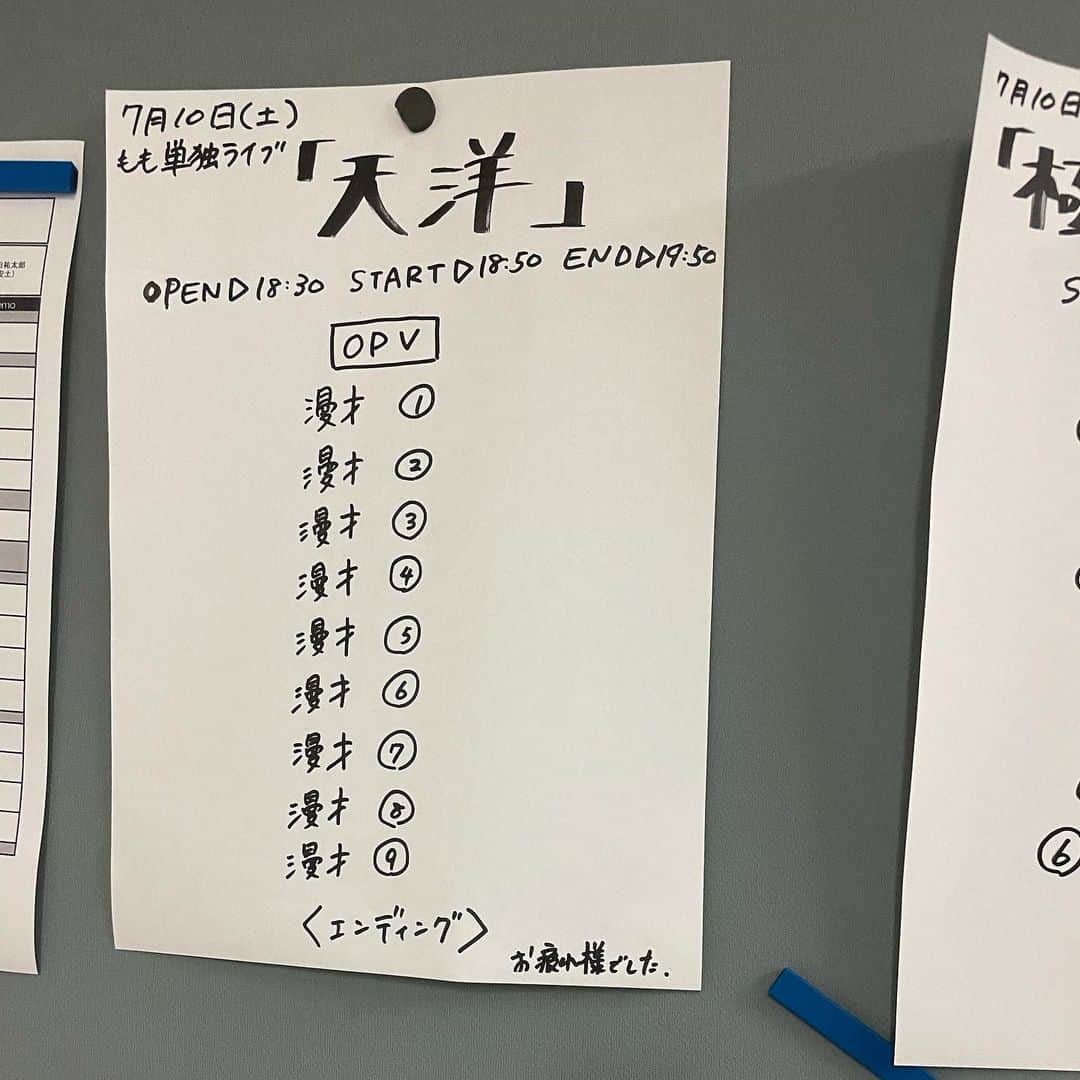 7月10日(土)
もも単独ライブ
「天洋」
OPEN▷18:30 START▷18:50 END▷19:50
OPV
漫才 ①
漫才 ②
漫才 ③
漫才 ④
漫才 ⑤
漫才 ⑥
漫才 ⑦
漫才 ⑧
漫才 ⑨
〈エンディング〉
お疲れ様でした.
祐太郎
安土)
emo
7月10日
「極
S
⑥